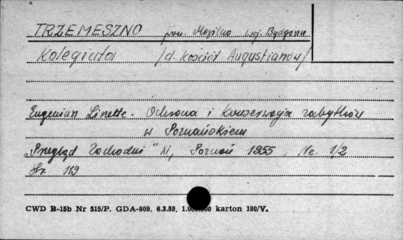 TRZEMESZNO pow. Mogilno woj. Bydgoszcz
Kolegiata /d. kościół Augustianów/
Eugeniusz Linette. Ochrona i konserwacja zabytków
w Poznańskiem
„Przegląd Zachodni" XI, Poznań 1955, Nr. 1/2
Str. 119
CWD B-15b Nr 515/P. GDA-809. 6.3.59, 1.000.000 karton 180/V.